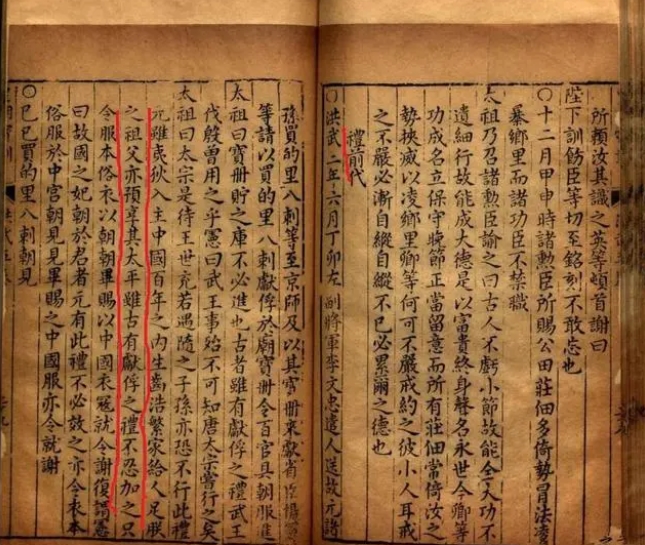 所賴汝其識之英等頓首謝曰
陛下訓飭臣等切至銘刻不敢忘也
〇十二月甲申時諸勲臣所賜公田莊佃多倚勢冒法凌
暴鄉里而諸功臣不禁戢
太祖乃召諸勲臣諭之曰古人不虧小節故能全大功不
遺細行故能成大德是以富貴終身聲名永世今卿等
功成名立保守晚節正當留意而所有莊佃常倚汝之
勢挾威以凌鄉里卿等何可不嚴戒約之彼小人耳戒
之不嚴必漸自縱自縱不已必累爾之德也
禮前代
〇洪武二年六月丁卯左副將軍李文忠遣人送故元諸
孫買的里八剌等至京師及以其寶冊來獻省
等請以買的里八剌獻俘於廟寶冊令百官具朝服進
太祖曰寶冊貯之庫不必進也古者雖有獻俘之禮武王
伐殷曾用之乎憲曰武王事殆不可知唐太宗嘗行之矣
太祖曰太宗是待王世充若遇隋之子孫亦恐不行此禮
元雖夷狄入主中國百年之內生齒浩繁家給人足朕
之祖父亦預享其太平雖古有獻俘之禮不忍加之只
令服本俗衣以朝朝畢賜以中國衣冠就令謝復謂憲
曰故國之妃朝於君者元有此禮不必效之亦令衣本
俗服於中宮朝見見畢賜之中國服亦令就謝
〇己巳買的里八剌朝見